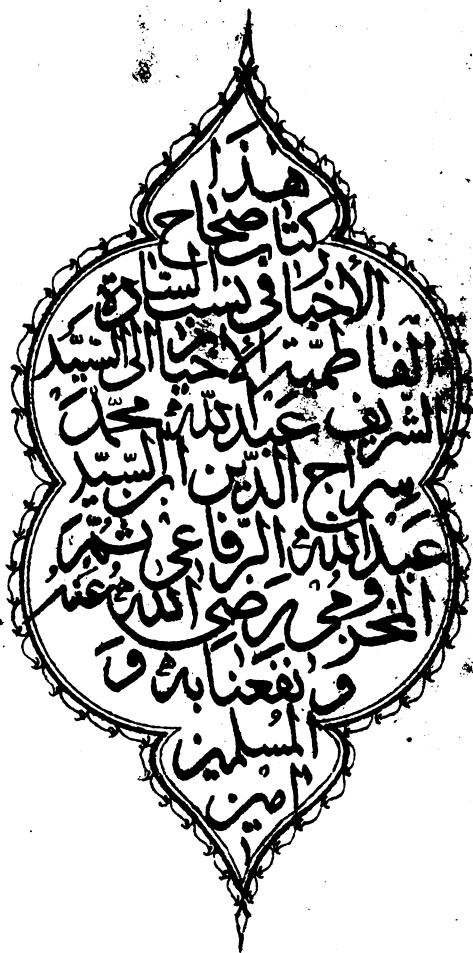 هذا
كتاب صحاح
الأخبار في نسب السادة
الفاطمية الأخيار الى السيد
الشريف عبد الله محمد
سراج الدين ابن السيد
عبد الله الرفاعي ثم
المخزومي رضي الله عنه
ونفعنا به و
المسلمين
امين